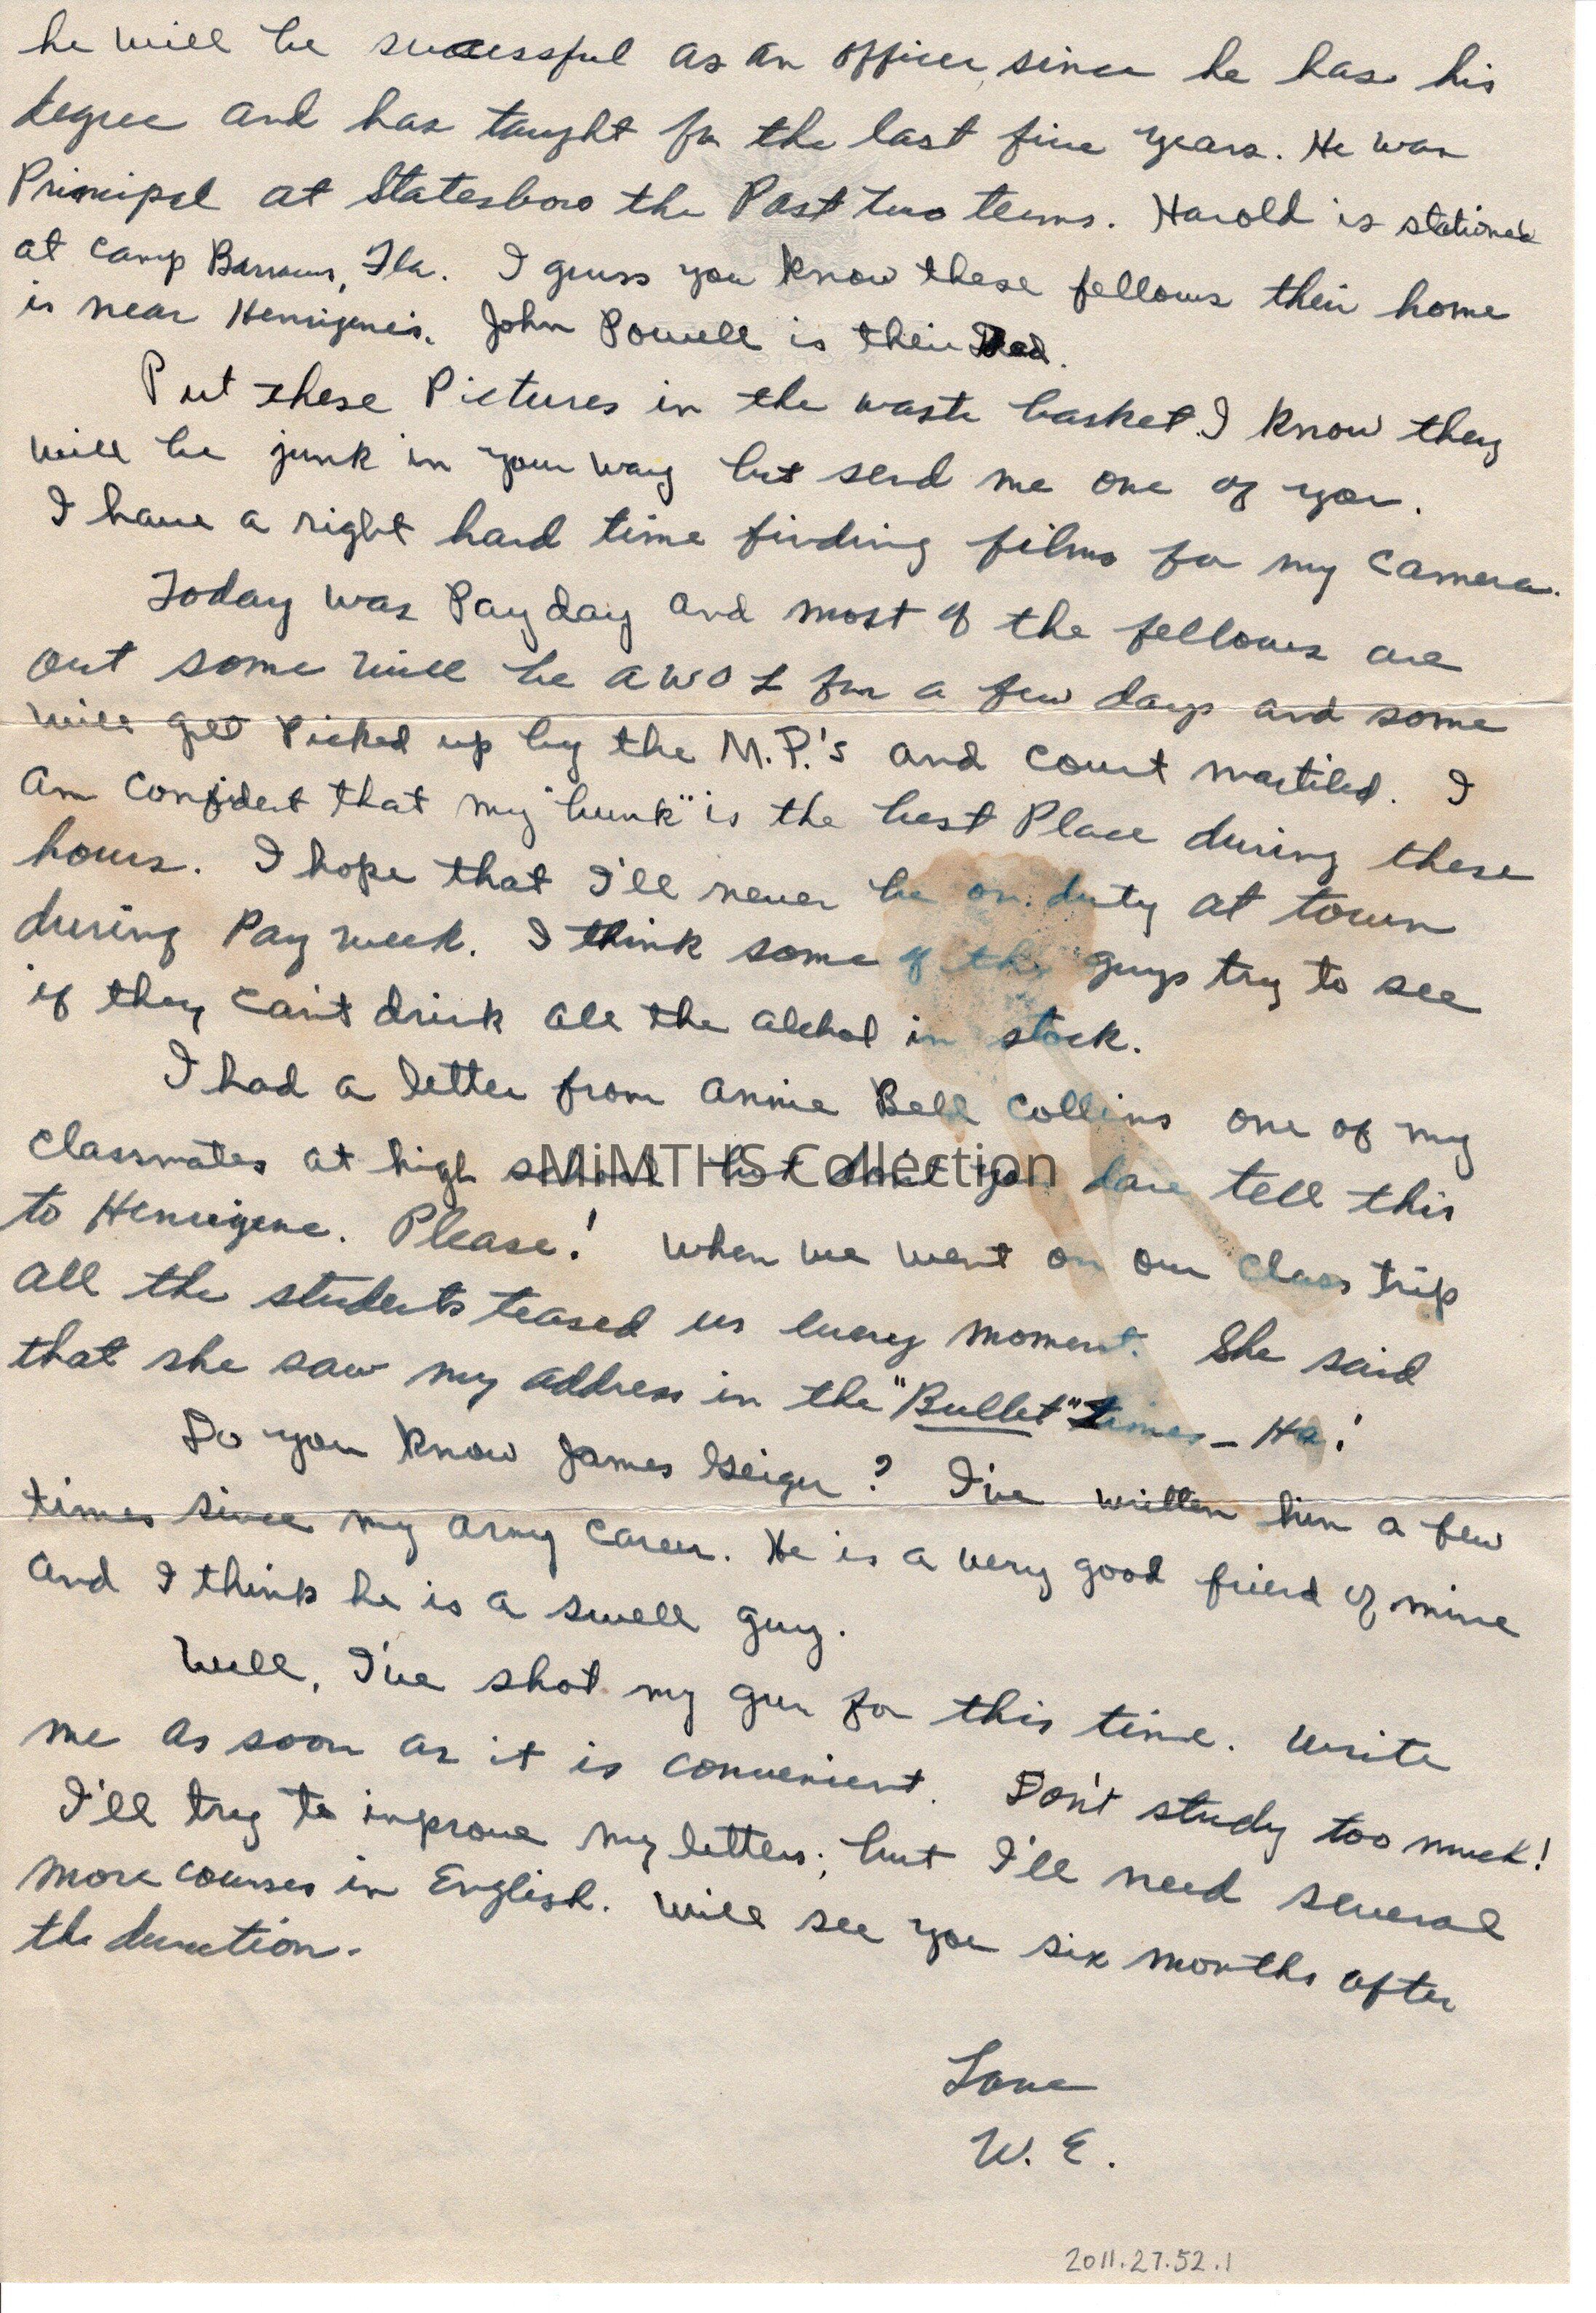 he will be successful as an officer, since he has his
degree and has taught for the last five years. He was
Principal at Statesboro the Past two terms. Harold is stationed
at Camp Barrows, Fla. I guess you know these fellows their home
is near Henrigene's. John Powell is their Dad.
Put these Pictures in the waste basket. I know they
will be junk in your way but send me one of you.
I have a right hard time finding films for my camera.
Today was Pay day and most of the fellows are
out some will be AWOL for a few days and some
will get Picked up by the M.P.'s and court martiled. I
am confident that my "bunk" is the best Place during these
hours. I hope that I'll never be on duty at town
during Pay week. I think some of the guys try to see
if they can't drink all the alchol in stock.
I had a letter from Annie Bell Collins one of my
classmates at high school but don't you dare tell this
MiMTHS Collection
to Henrigene. Please! When we went on our class trip
all the students teased us every moment. She said
that she saw my address in the "Bullet" times - Ha!
Do you know James Geiger? I've written him a few
times since my army career. He is a very good friend of mine
and I think he is a swell guy.
Well, I've shot my gun for this time. Write
me as soon as it is convenient. Don't study too much!
I'll try to improve my letters; but I'll need several
more courses in English. Will see you six months after
the duration.
Love
W. E.
2011.27.52.1